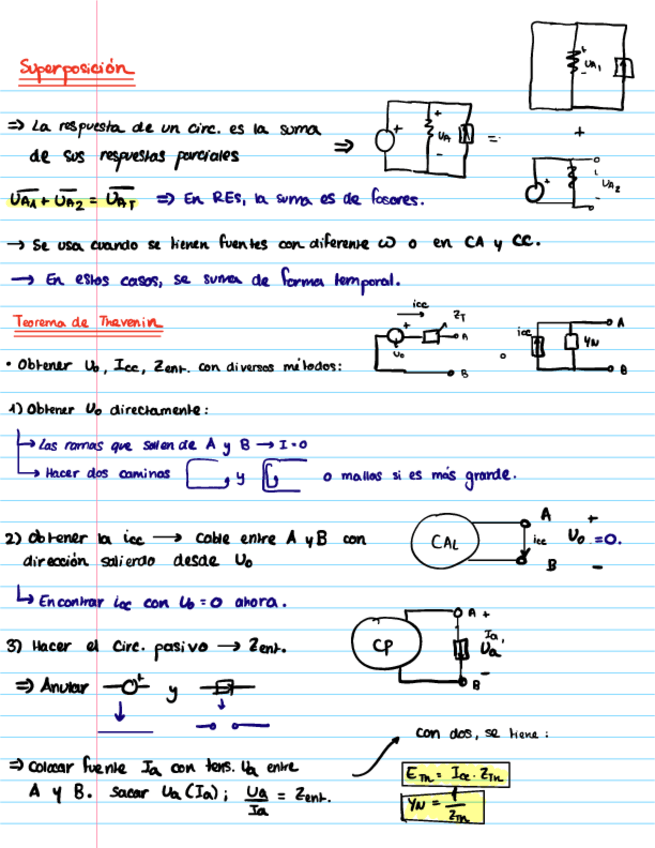 Superposición
+ UA1 -
⇒ La respuesta de un circ. es la suma
de sus respuestas parciales ⇒ + + UA - = +
UA1 + UA2 = UAT ⇒ En REs, la suma es de fasores. + UA2
→ Se usa cuando se tienen fuentes con diferente ω o en CA y CC.
→ En estos casos, se suma de forma temporal.
Teorema de Thevenin
icc ZT + A U0 B o icc YN A B
• Obtener U0, Icc, Zent. con diversos métodos:
1) Obtener U0 directamente:
→ Las ramas que salen de A y B → I=0
→ Hacer dos caminos y o mallas si es más grande.
2) Obtener la icc → Cable entre A y B con
dirección saliendo desde U0
CAL A + icc U0 =0. B -
↳ Encontrar icc con U0 = 0 ahora.
3) Hacer el Circ. pasivo → Zent.
CP A + Ia, Ua - B
⇒ Anular + y
↓ ↓
con dos, se tiene:
⇒ Colocar fuente Ia con tens. Ua entre
A y B. Sacar Ua (Ia); Ua/Ia = Zent.
ETh = Icc · ZTh
YN = 1/ZTh